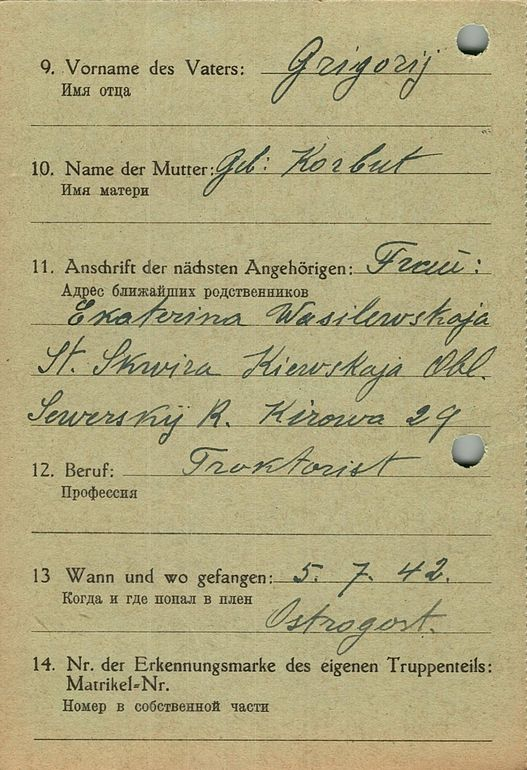 9. Vorname des Vaters: Grigorij
Имя отца
10. Name der Mutter: Geb: Korbut
Имя матери
11. Anschrift der nächsten Angehörigen: Frau:
Адрес ближайших родственников
Ekaterina Wasilewskaja
St. Skwira Kiewskaja Obl.
Sewerskij R. Kirowa 29
12. Beruf: Troktorist
Профессия
13 Wann und wo gefangen: 5. 7. 42.
Когда и где попал в плен
Ostrogost.
14. Nr. der Erkennungsmarke des eigenen Truppenteils:
Matrikel-Nr.
Номер в собственной части